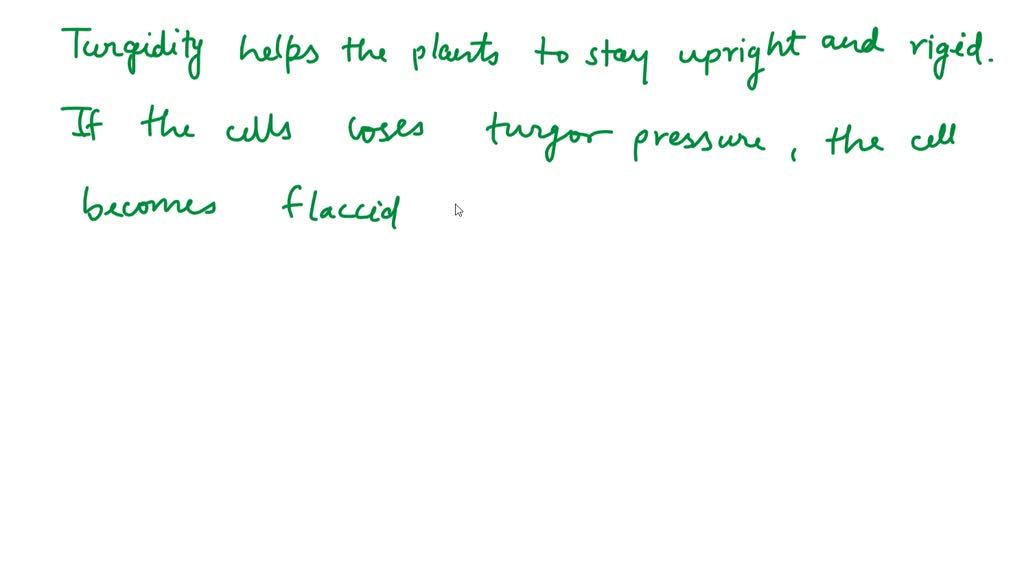 Turgidity helps the plants to stay upright and rigid.
If the cells loses turgor pressure, the cell
becomes flaccid